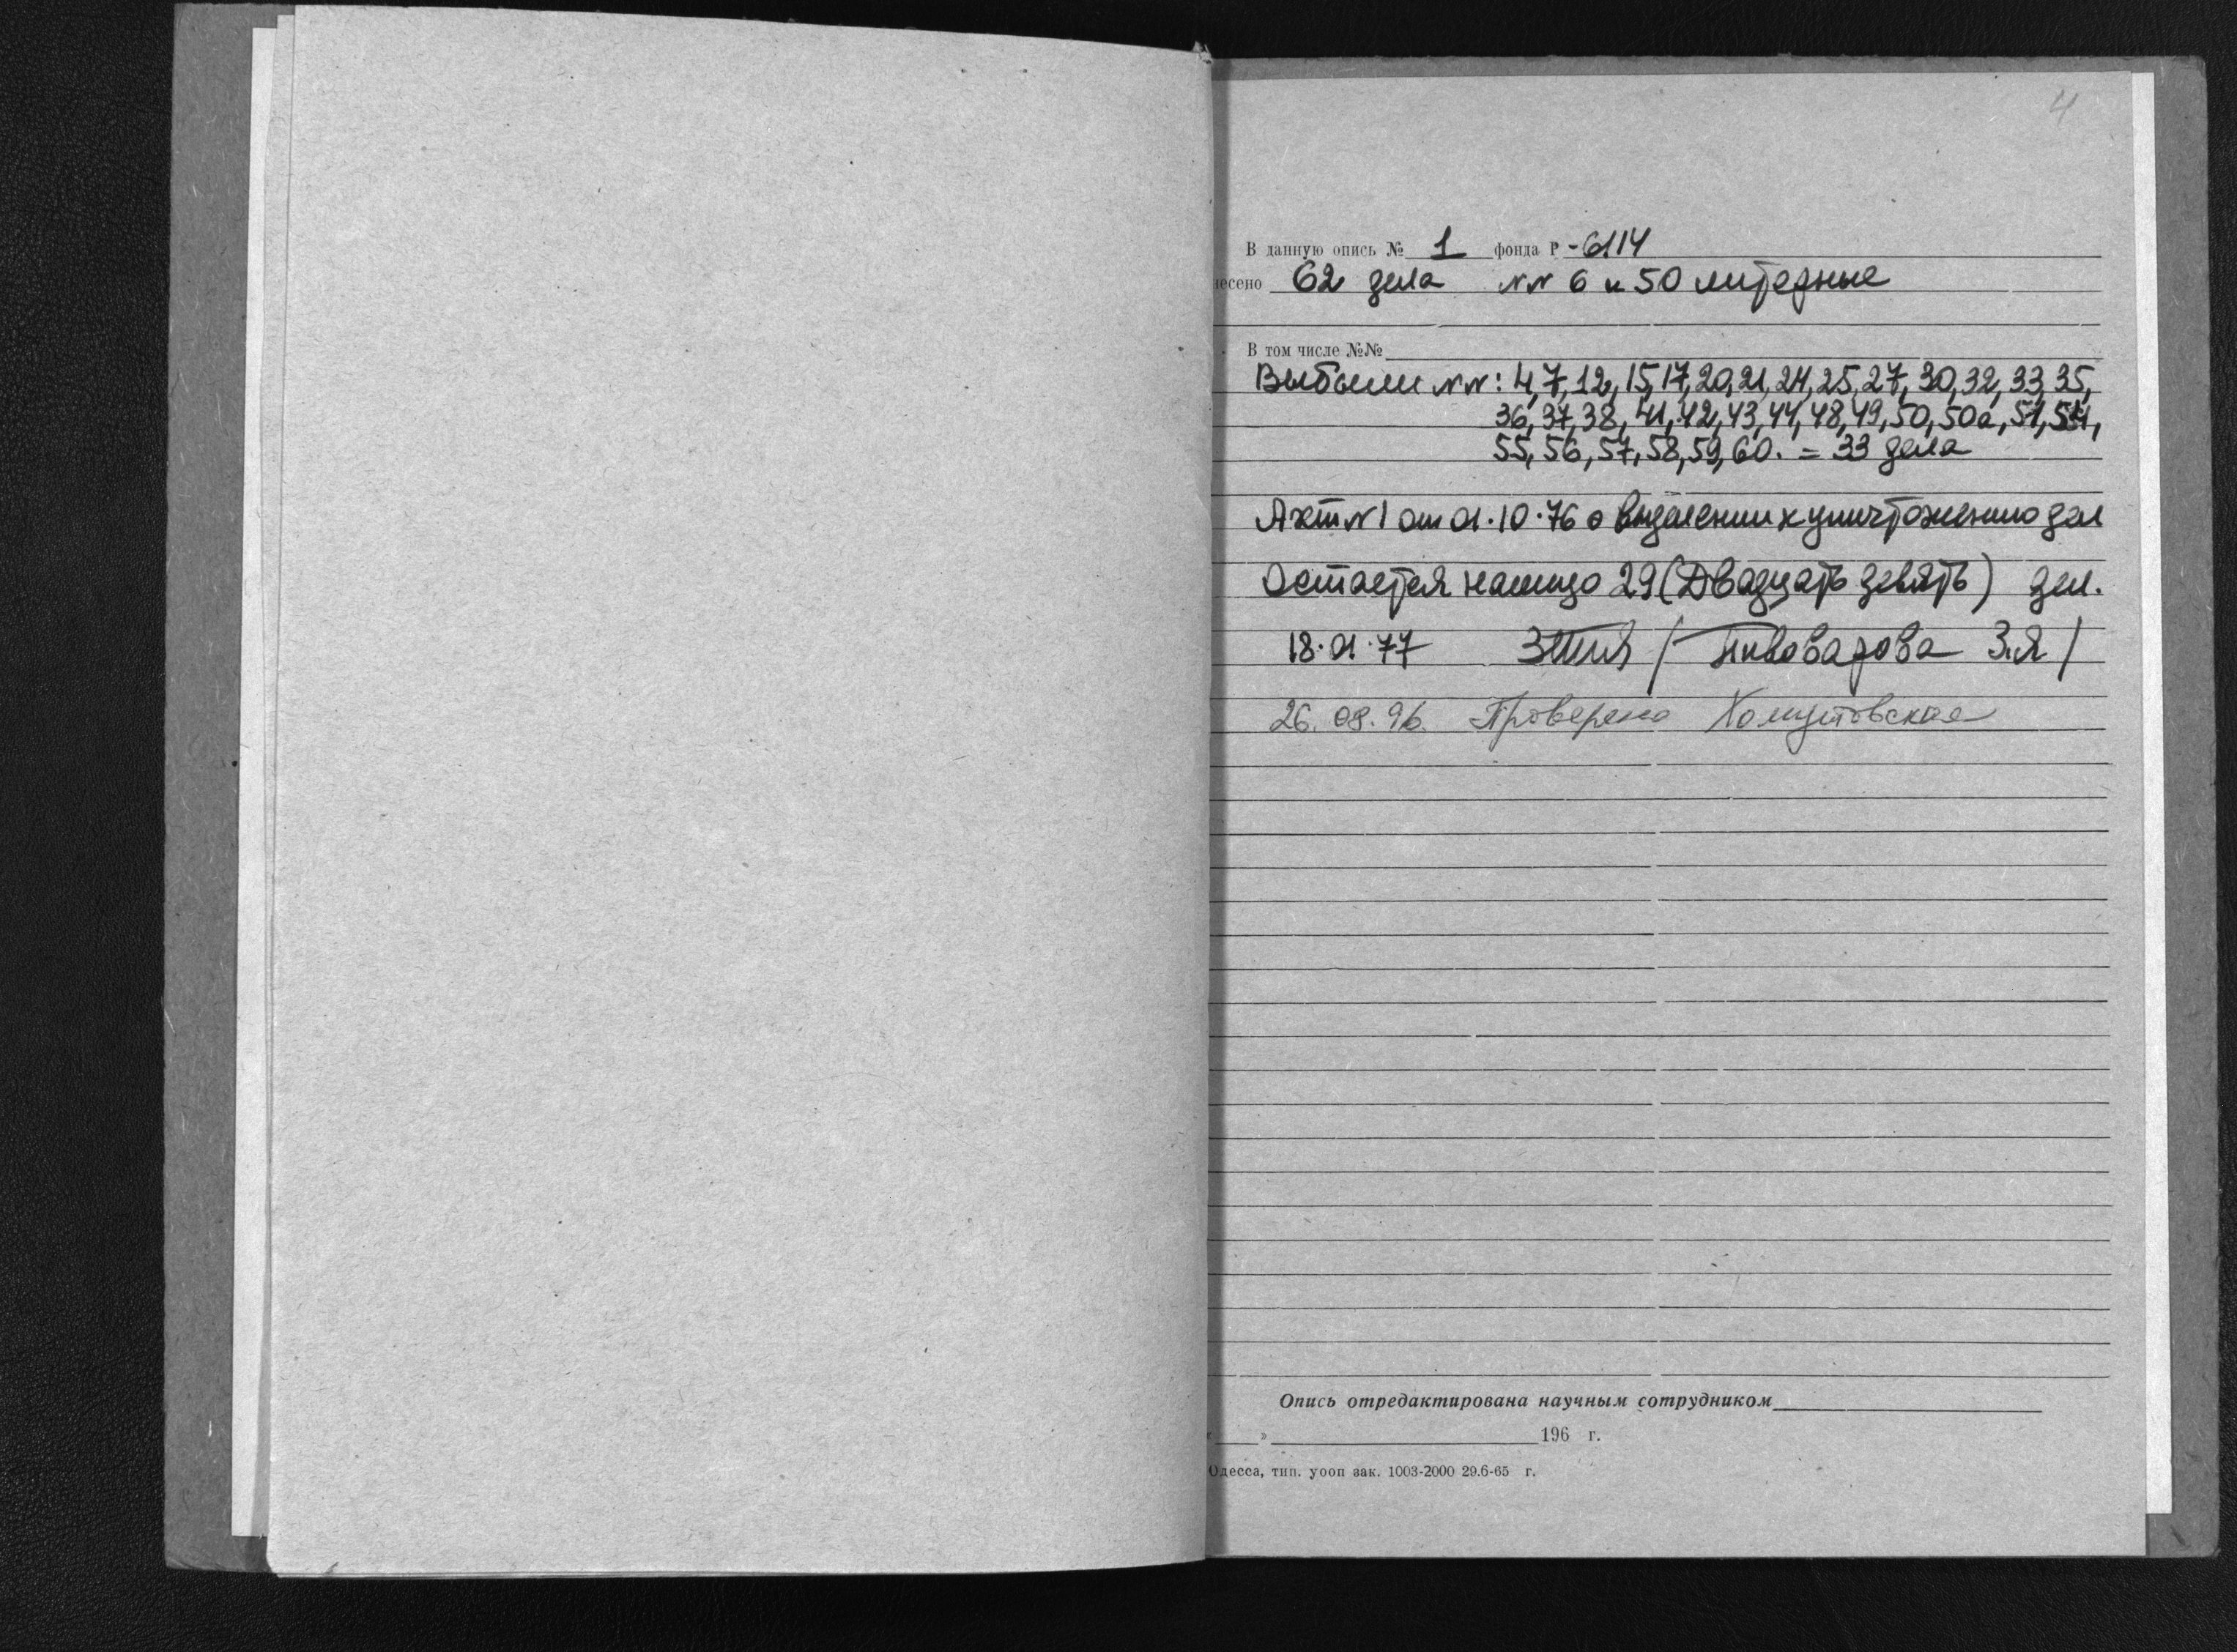 4
В данную опись № 1 фонда Р -6114
несено 62 дела №№ 6 и 50 литерные
В том числе №№
Выбыли №№: 4, 7, 12, 15, 17, 20, 21, 24, 25, 27, 30, 32, 33, 35,
36, 37, 38, 41, 42, 43, 44, 48, 49, 50, 50а, 51, 54,
55, 56, 57, 58, 59, 60. = 33 дела
Акт №1 от 01.10.76 о выделении к уничтожению дел
Остается налицо 29 (Двадцать девять) дел.
18.01.77 / Пивоварова З.Я /
26.08.96. Проверено Хомутовская
Опись отредактирована научным сотрудником
« » 196 г.
Одесса, тип. уооп зак. 1003-2000 29.6-65 г.